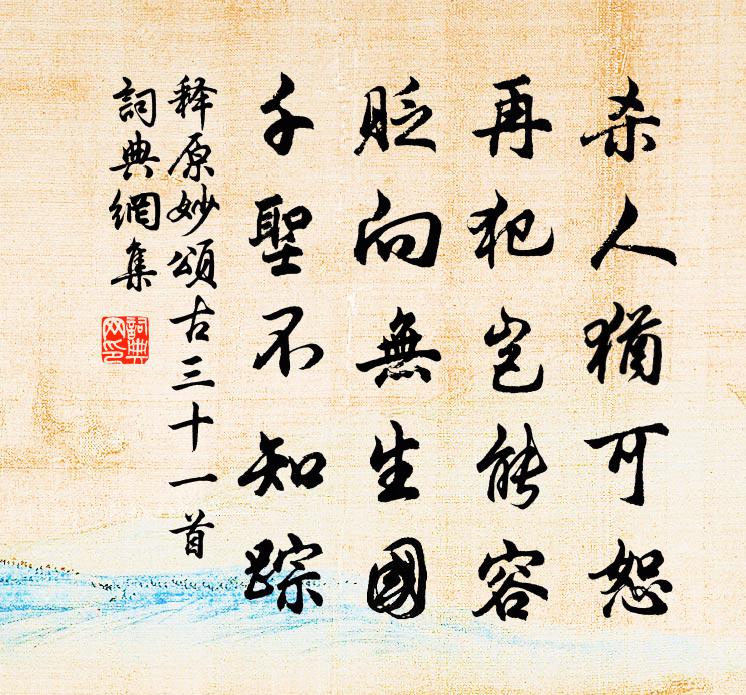 杀人猶可恕
再犯岂能容
貶向無生國
千聖不知踪
释原妙頌古三十一首
詞典網集
詞典网印